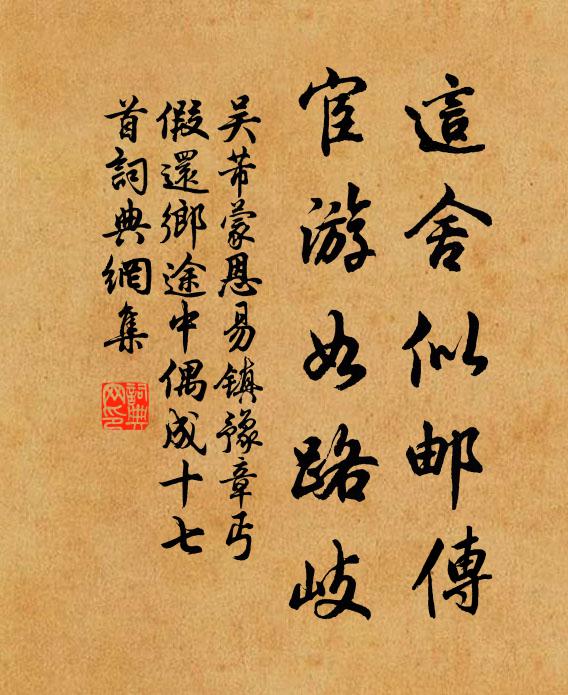 這舍似邮傳
宦游如路岐
吴芾蒙恩易镇豫章丐
假還鄉途中偶成十七
首詞典網集
詞典网印